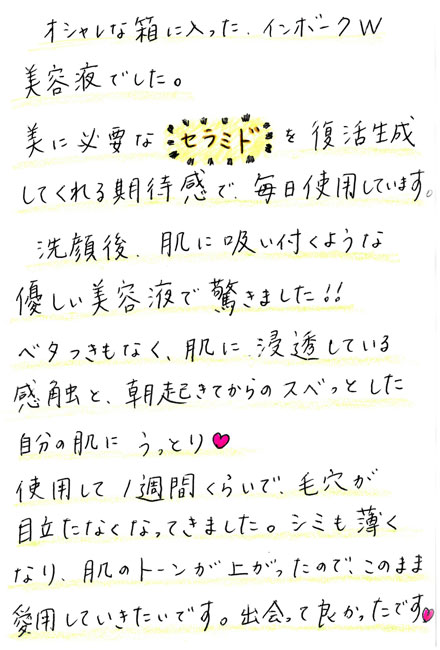 オシャレな箱に入った、インボークW
美容液でした。
美に必要なセラミドを復活生成
してくれる期待感で、毎日使用しています。
洗顔後、肌に吸い付くような
優しい美容液で驚きました!!
ベタつきもなく、肌に浸透している
感触と、朝起きてからのスベっとした
自分の肌にうっとり♥
使用して1週間くらいで、毛穴が
目立たなくなってきました。シミも薄く
なり、肌のトーンが上がったので、このまま
愛用していきたいです。出会って良かったです♥